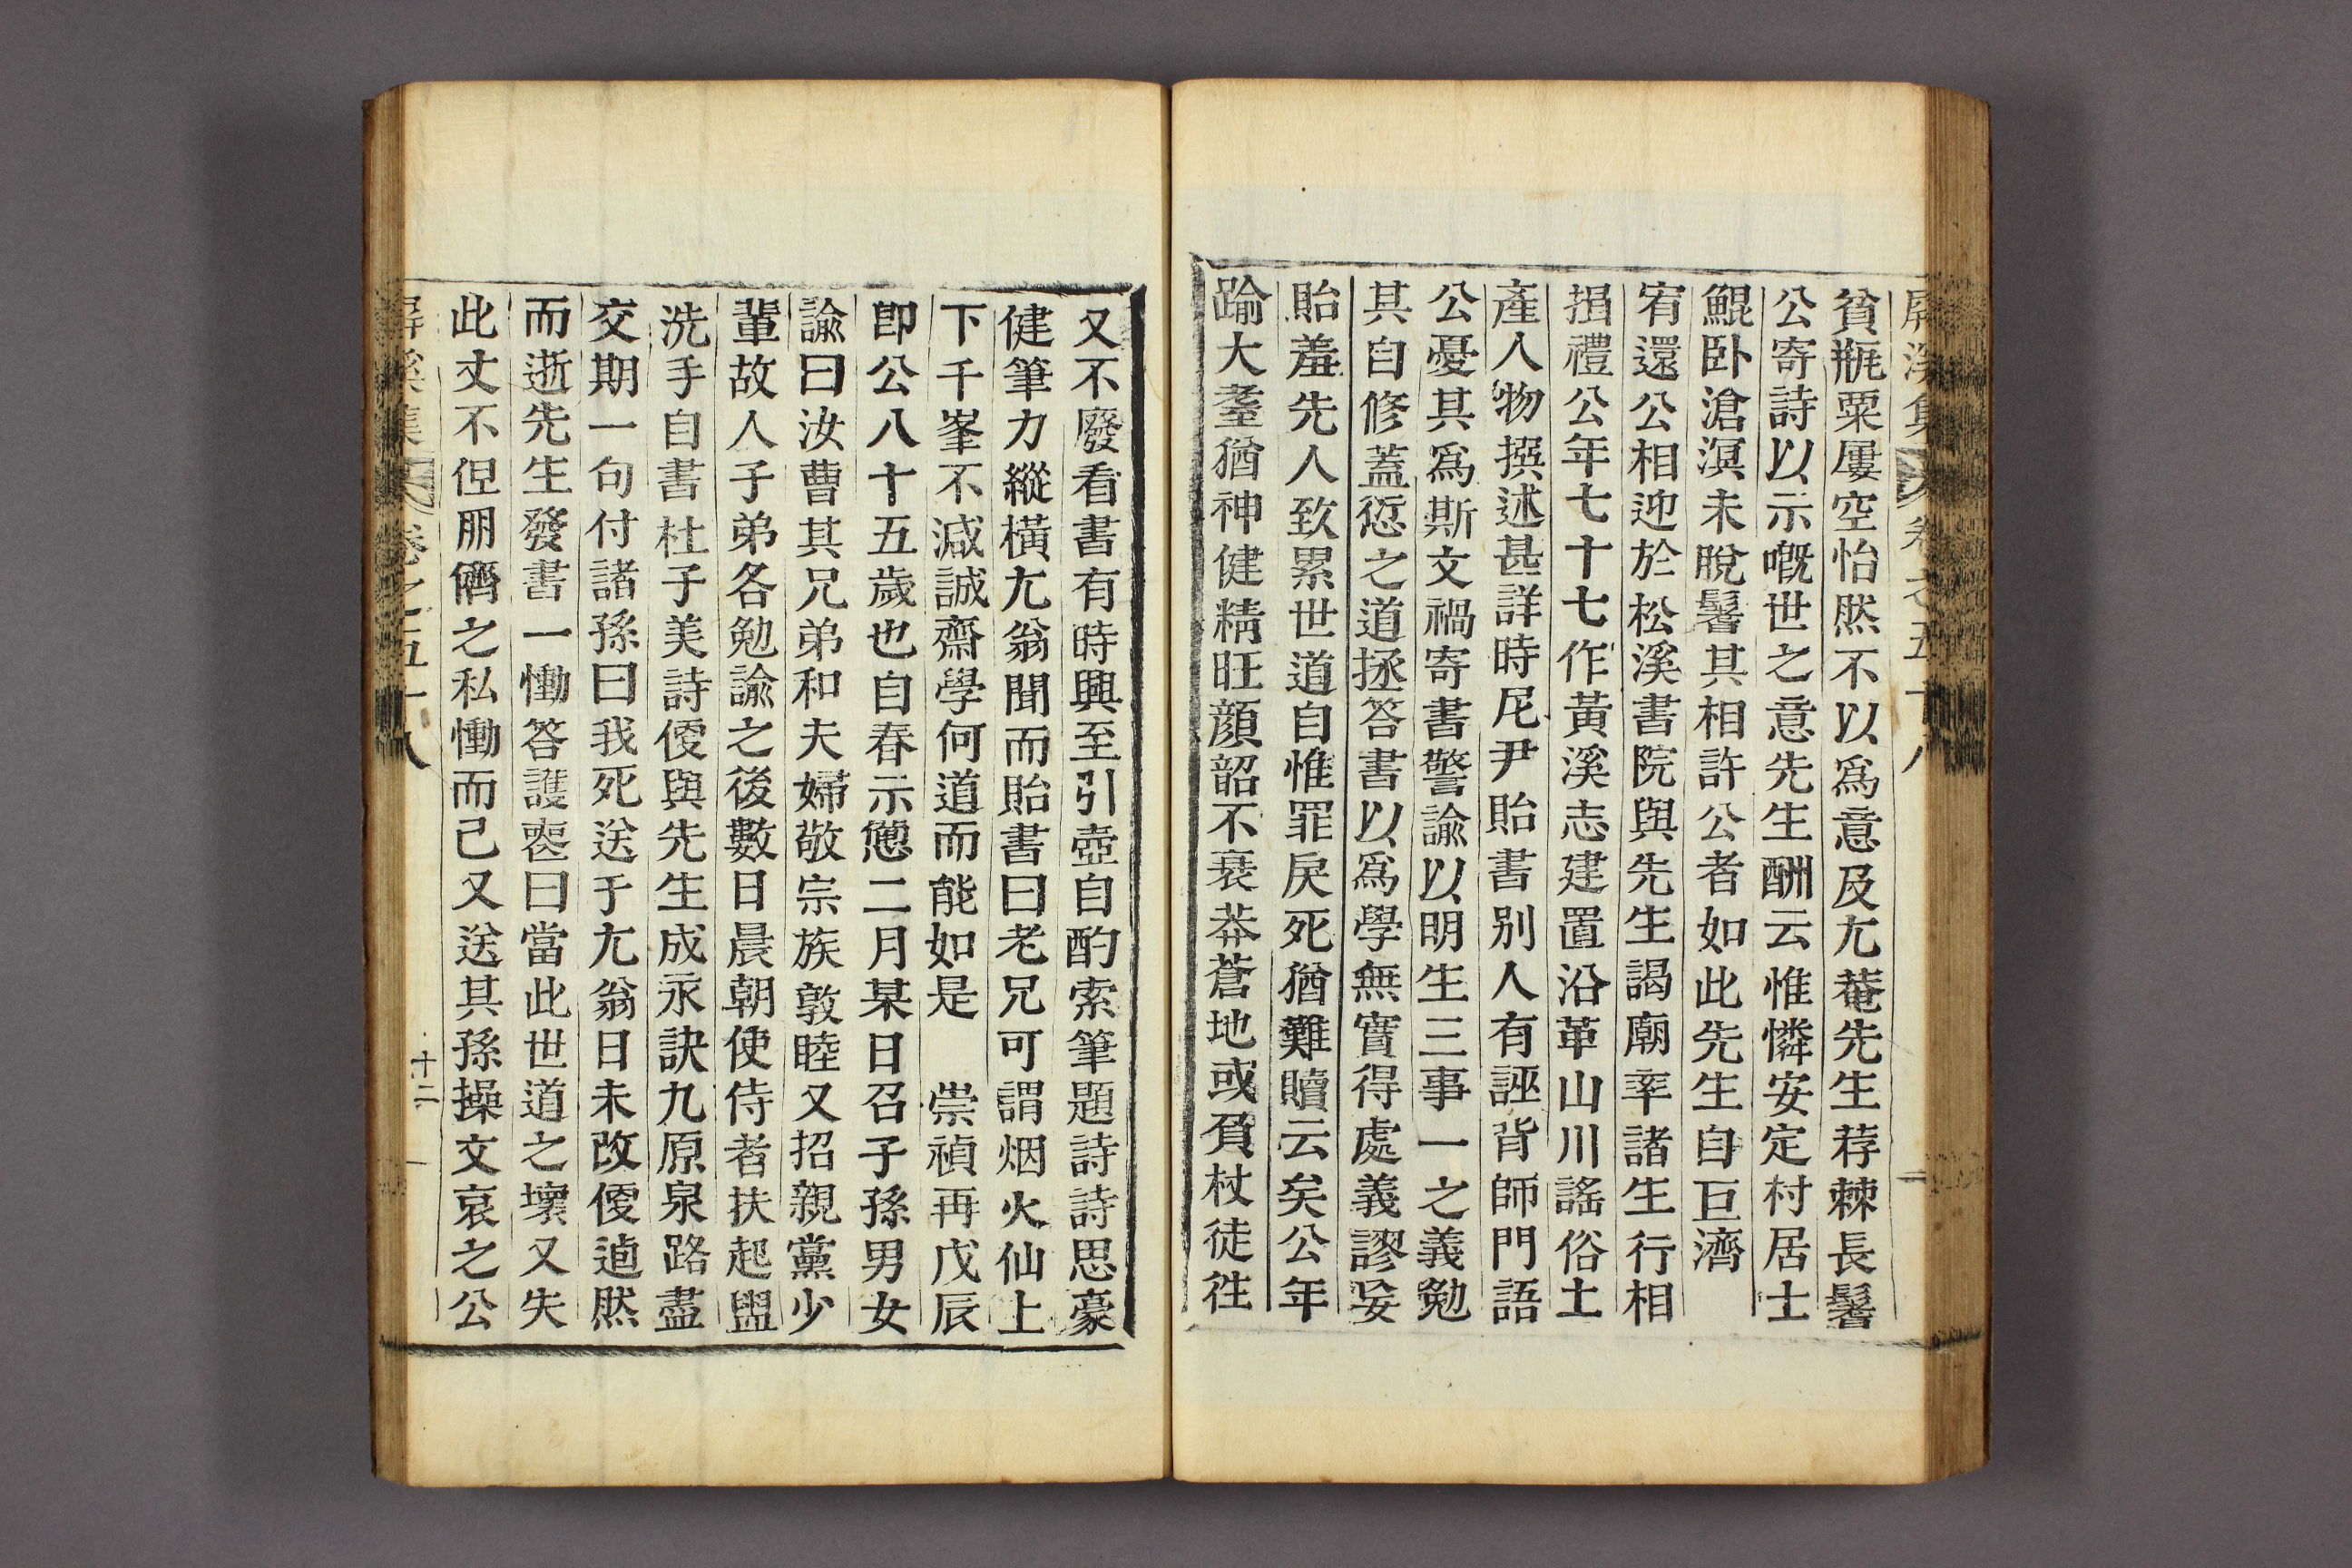 屛溪集 卷之五十八
貧瓶粟屢空怡然不以爲意及尤菴先生荐棘長鬐
公寄詩以示嘅世之意先生酬云惟憐安定村居士
鯤卧滄溟未脫鬐其相許公者如此先生自巨濟
宥還公相迎於松溪書院與先生謁廟率諸生行相
揖禮公年七十七作黃溪志建置沿革山川謠俗土
產人物撰述甚詳時尼尹貽書別人有誣背師門語
公憂其爲斯文禍寄書警諭以明生三事一之義勉
其自修蓋愆之道拯答書以爲學無實得處義謬妄
貽羞先人致累世道自惟罪戾死猶難贖云矣公年
踰大耋猶神健精旺顔韶不衰莽蒼地或負杖徒徃
又不廢看書有時興至引壺自酌索筆題詩詩思豪
健筆力縱橫尤翁聞而貽書曰老兄可謂烟火仙上
下千峯不减誠齋學何道而能如是 崇禎再戊辰
卽公八十五歲也自春示憊二月某日召子孫男女
諭曰汝曹其兄弟和夫婦敬宗族敦睦又招親黨少
輩故人子弟各勉諭之後數日晨朝使侍者扶起盥
洗手自書杜子美詩便與先生成永訣九原泉路盡
交期一句付諸孫曰我死送于尤翁日未改便逌然
而逝先生發書一慟答護喪曰當此世道之壞又失
此丈不但朋儕之私慟而已又送其孫操文哀之公
屛溪集 卷之五十八 十二